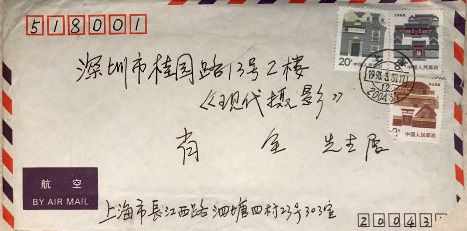 518001
20分
中国人民邮政
中国人民邮政
中国人民邮政
深圳市桂园路13号2楼
《现代摄影》
肖全 先生展
航空
BY AIR MAIL
上海市長江西路泗塘四村23号303室
20043